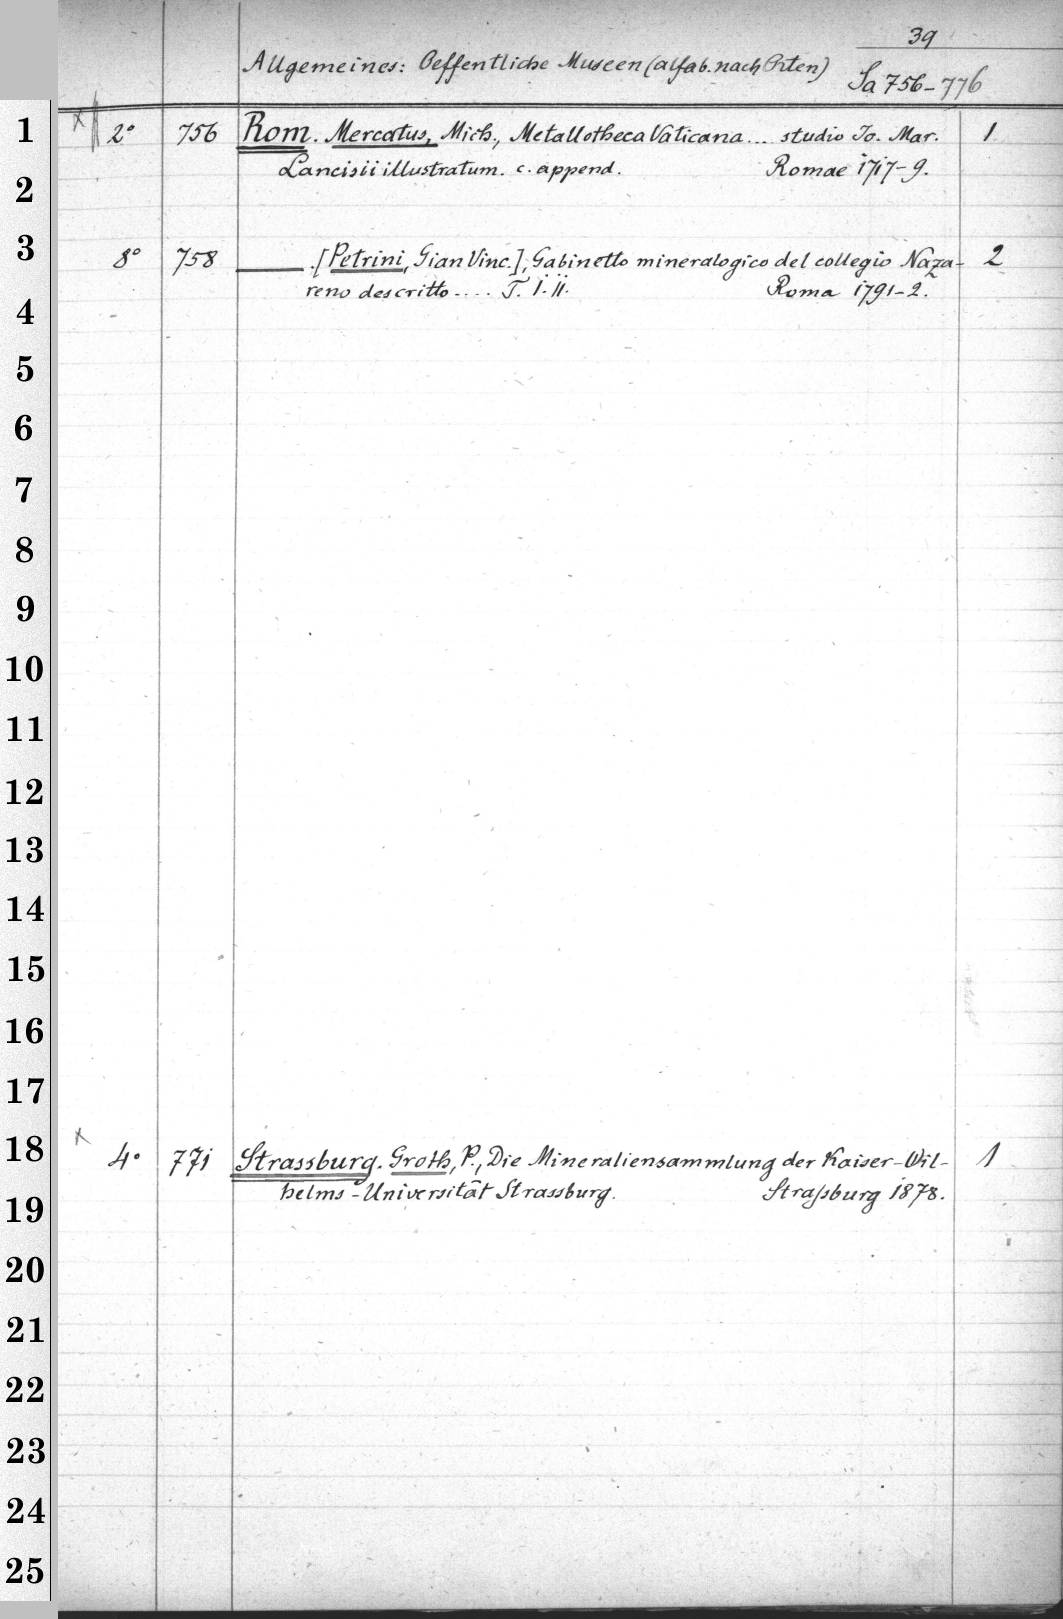 39
Allgemeines: Oeffentliche Museen (alfab. nach Orten)
Sa 756-776
1 2° 756 Rom. Mercatus, Mich., Metallotheca Vaticana... studio Jo. Mar. 1
2 Lancisii illustratum. c. append. Romae 1717-9.
3 8° 758 —— . [Petrini, Gian Vinc.], Gabinetto mineralogico del collegio Naza- 2
4 reno descritto.... T. I. II. Roma 1791-2.
5
6
7
8
9
10
11
12
13
14
15
16
17
18 4° 771 Strassburg. Groth, P., Die Mineraliensammlung der Kaiser-Wil- 1
19 helms-Universität Strassburg. Straßburg 1878.
20
21
22
23
24
25